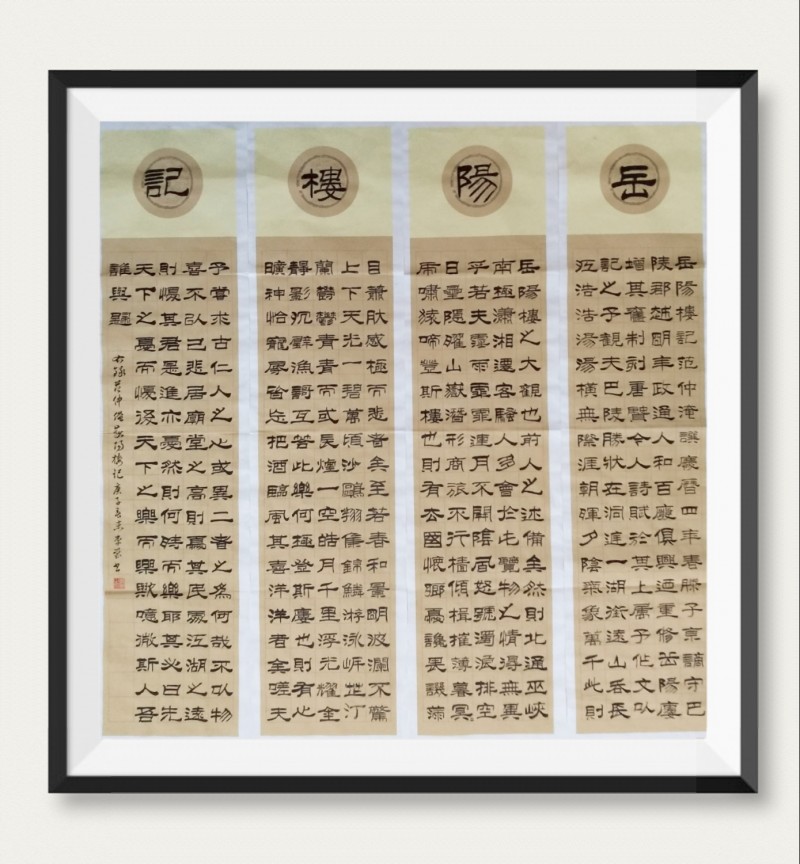 岳
陽
樓
記
岳陽樓記范仲淹譔慶曆四年春滕子京謫守巴
陵郡越明年政通人和百廢俱興迺重修岳陽廔
增其舊制刻唐賢今人詩賦於其上屬予作文以
記之予觀夫巴陵勝狀在洞庭一湖銜遠山吞長
江浩浩湯湯橫無際涯朝暉夕陰氣象萬千此則
岳陽樓之大觀也前人之述備矣然則北通巫峽
南極瀟湘遷客騷人多會於此覽物之情得無異
乎若夫霪雨霏霏連月不開陰風怒號濁浪排空
日星隱曜山嶽潛形商旅不行檣傾楫摧薄暮冥
虎嘯猿啼登斯樓也則有去國懷鄉憂讒畏譏滿
目蕭然感極而悲者矣至若春和景明波瀾不驚
上下天光一碧萬頃沙鷗翔集錦鱗游泳岸芷汀
蘭鬱鬱青青而或長煙一空皓月千里浮光耀金
靜影沉璧漁歌互答此樂何極登斯廔也則有心
曠神怡寵辱皆忘把酒臨風其喜洋洋者矣嗟夫
予嘗求古仁人之心或異二者之為何哉不以物
喜不以己悲居廟堂之高則憂其民處江湖之遠
則憂其君是進亦憂然則何時而樂耶其必曰先
天下之憂而憂後天下之樂而樂歟噫微斯人吾
誰與歸
右録范仲淹岳陽樓記庚子